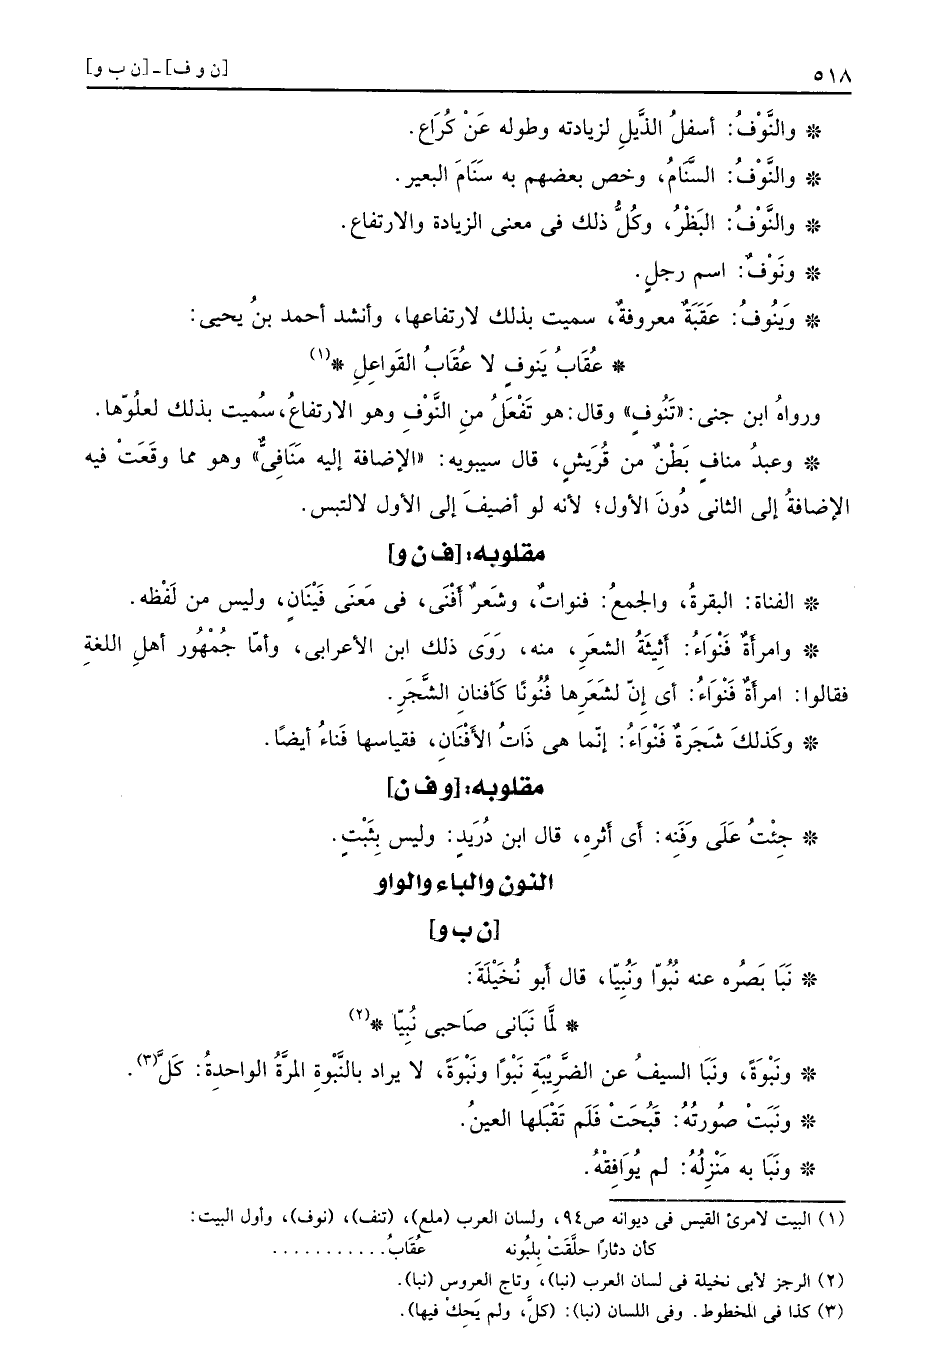 ٥١٨
[ن و ف] ـ [ن ب و]
* والنَّوْفُ: أسفلُ الذَّيلِ لزيادته وطوله عَنْ كُرَاع.
* والنَّوْفُ: السَّنَامُ، وخص بعضهم به سَنَامَ البعير.
* والنَّوْفُ: البَظْرُ، وكُلُّ ذلك فى معنى الزيادة والارتفاع.
* ونَوْفٌ: اسم رجلٍ.
* وَيَنُوفُ: عَقَبَةٌ معروفةٌ، سميت بذلك لارتفاعها، وأنشد أحمد بنُ يحيى:
* عُقَابُ يَنوفٍ لا عُقَابُ القَواعلِ *(١)
ورواهُ ابن جنى: «تَنُوفٍ» وقال: هو تَفْعَلُ منِ النَّوْفِ وهو الارتفاعُ، سُميت بذلك لعلُوّها.
* وعبدُ منافٍ بَطْنٌ من قُرَيشٍ، قال سيبويه: «الإضافة إليه مَنَافِىٌّ» وهو مما وقَعَتْ فيه
الإضافةُ إلى الثانى دُونَ الأول؛ لأنه لو أضيفَ إلى الأول لالتبس.
مقلوبه: [ف ن و]
* الفناة: البقرةُ، والجمعُ: فنواتٌ، وشَعرٌ أَفْنَى، فى مَعنَى فَيْنَانٍ، وليس من لَفْظه.
* وامرأةٌ فَنْوَاءُ: أثِيثَةُ الشعَرِ، منه، رَوَى ذلك ابن الأعرابى، وأمّا جمْهُور أهلِ اللغةِ
فقالوا: امرأَةٌ فَنْوَاءُ: أى إنّ لشَعَرِها فُنُونًا كَأفنانِ الشَّجَرِ.
* وكَذلكَ شَجَرةٌ فَنْوَاءُ: إنّما هى ذَاتُ الأَفْنَانِ، فقياسها فَناءُ أيضًا.
مقلوبه: [و ف ن]
* جِئْتُ عَلَى وَفَنِه: أَى أَثرهِ، قال ابن دُرَيدٍ: وليس بِثَبْتٍ.
النون والباء والواو
[ن ب و]
* نَبَا بَصَرُه عنه نُبُوّا ونُبِيّا، قال أَبو نُخَيْلَةَ:
* لَمَّا نَبَانى صَاحبِى نُبِيّا *(٢)
* ونَبْوَةً، ونَبَا السيفُ عن الضَّرِيْبَةِ نَبْوًا ونَبْوَةً، لا يراد بالنَّبْوةِ المرَّةُ الواحدةُ: كَلَّ(٣).
* ونَبَتْ صُورتُهُ: قَبُحَتْ فَلَم تَقْبَلها العينُ.
* ونَبَا به مَنْزِلُهُ: لم يُوَافِقْهُ.
(١) البيت لامرئ القيس فى ديوانه ص٩٤، ولسان العرب (ملع)، (تنف)، (نوف)، وأول البيت:
كأن دثارًا حلَّقَتْ بِلَبُونه عُقَابُ...........
(٢) الرجز لأبى نخيلة فى لسان العرب (نبا)، وتاج العروس (نبا).
(٣) كذا فى المخطوط. وفى اللسان (نبا): (كلَّ، ولم يَحِكْ فيها).